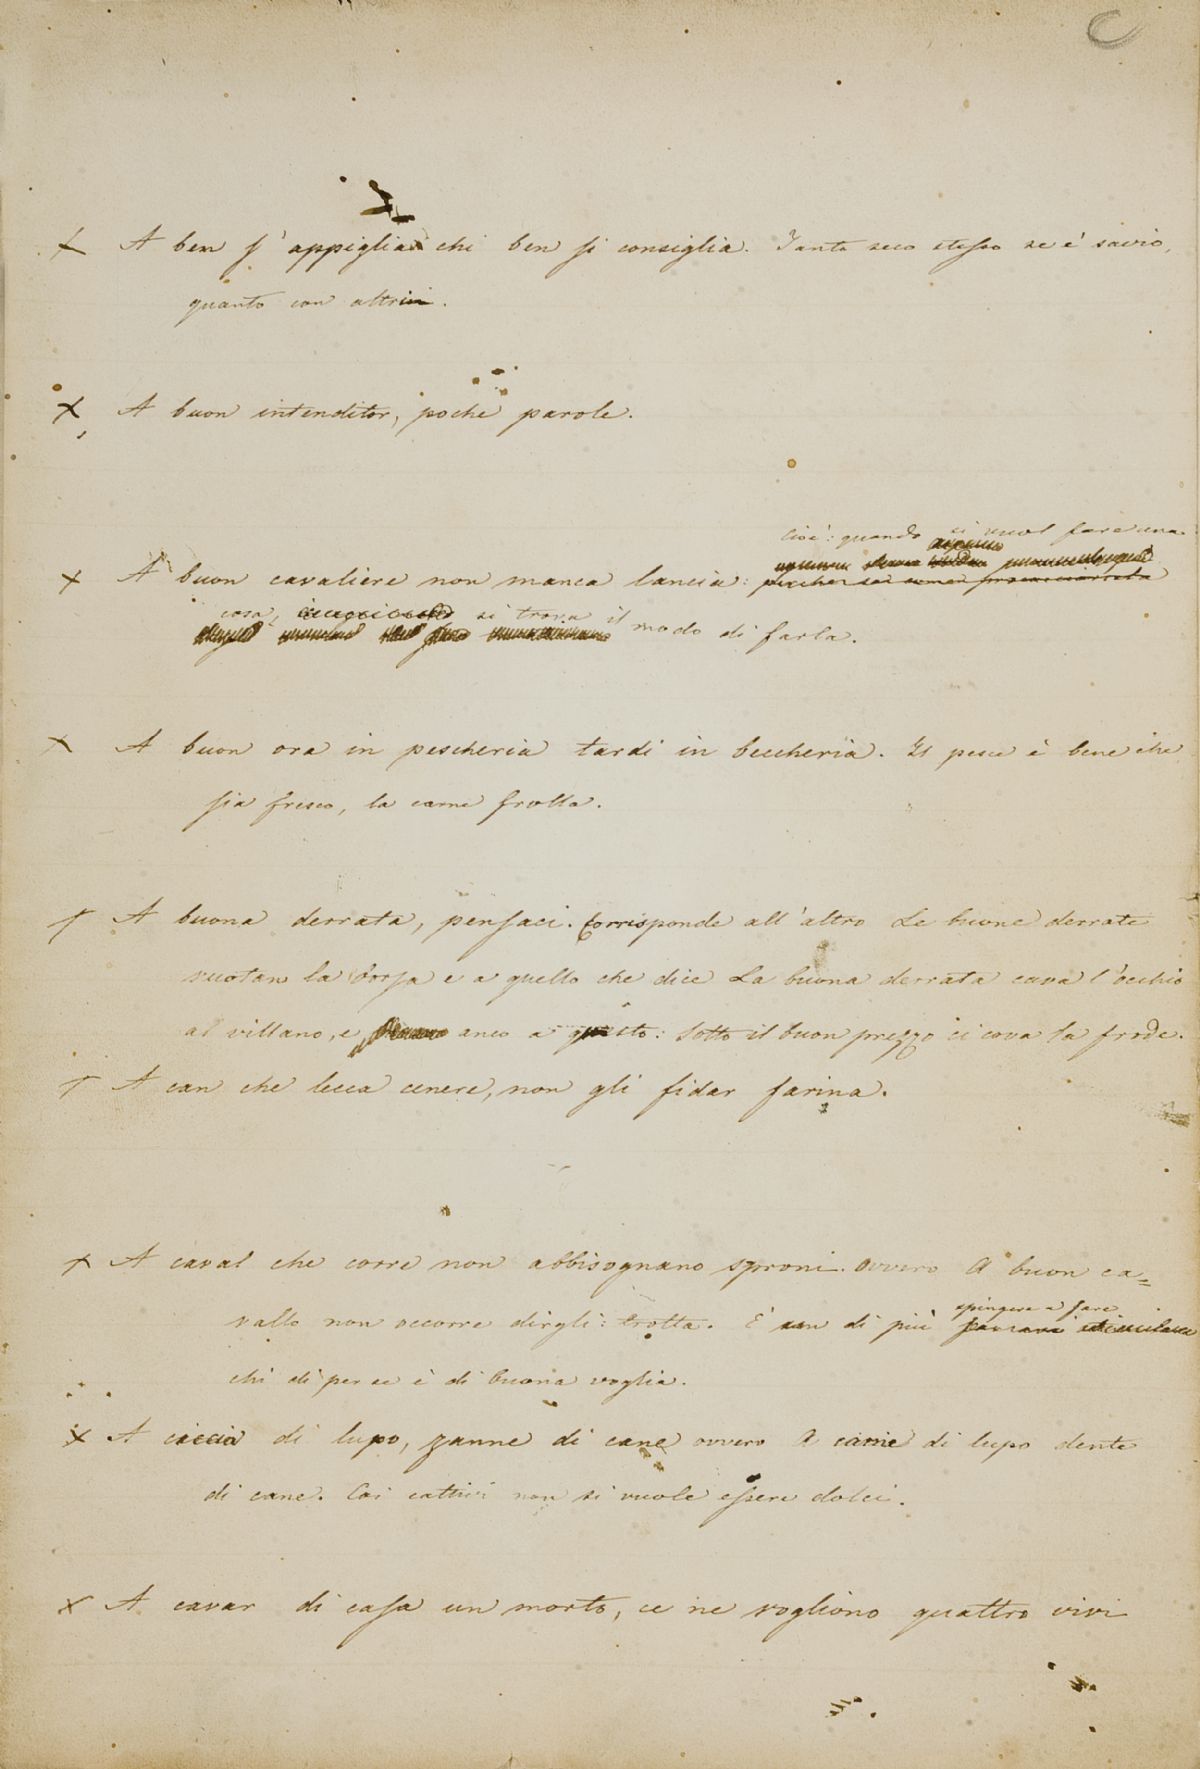 C
A ben s'appiglia chi ben si consiglia. Tanto seco stesso se è savio,
quanto con altrui.
A buon intenditor, poche parole.
cioè: quando si vuol fare una
A buon cavaliere non manca lancia:
cosa, si trova il modo di farla.
A buon ora in pescheria tardi in beccheria. Il pesce è bene che
sia fresco, la carne frolla.
A buona derrata, pensaci. Corrisponde all'altro Le buone derrate
vuotan la borsa e a quello che dice La buona derrata cava l'occhio
al villano, e anco a questo: Sotto il buon prezzo ci cova la frode.
A can che lecca cenere, non gli fidar farina.
A caval che corre non abbisognano sproni. ovvero A buon ca=
vallo non occorre dirgli: trotta. È un di più
spingere a fare
chi di per se è di buona voglia.
A ciccia di lupo, zanne di cane ovvero A carne di lupo dente
di cane. Coi cattivi non si vuole essere dolci.
A cavar di casa un morto, ce ne vogliono quattro vivi